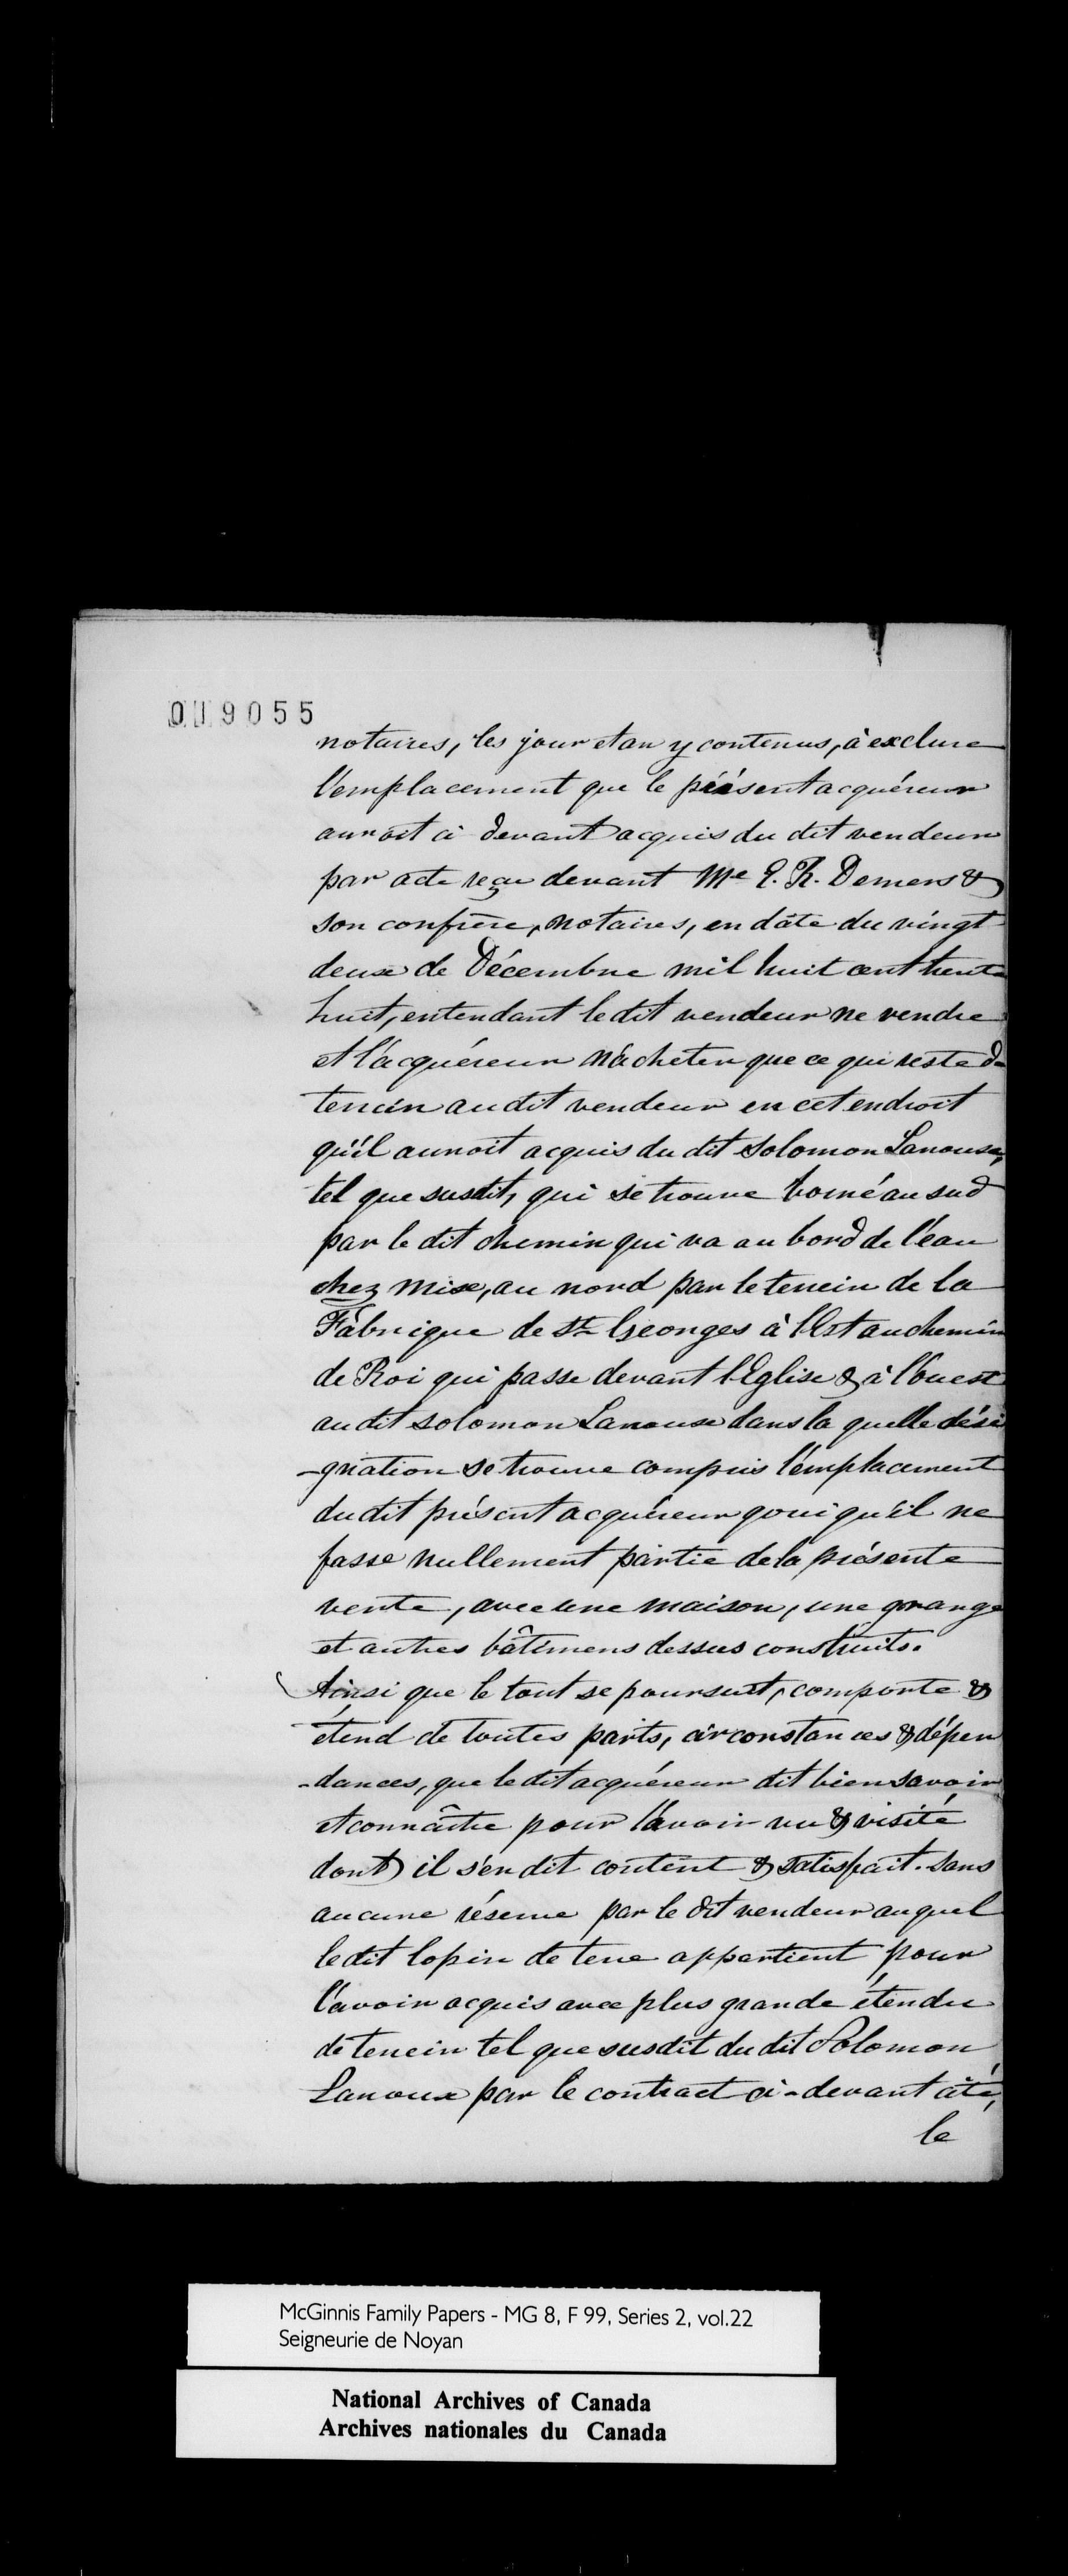 019055
notaires, les jour et an y contenus, à exclure
l'emplacement que le présent acquéreur
auroit ci devant acquis du dit vendeur
par acte reçu devant Me E. R. Demers &
son confrère, notaires, en dâte du vingt
deux de Décembre mil huit cent trente
huit, entendant le dit vendeur ne vendre
et l'acquéreur n'acheter que ce qui reste de
terrein au dit vendeur en cet endroit
qu'il auroit acquis du dit Solomon Lanouse,
tel que susdit, qui se trouve borné au sud
par le dit chemin qui va au bord de l'eau
chez Mise, au nord par le terrein de la
Fabrique de St Georges à l'Est au chemin
de Roi qui passe devant l'Eglise & à l'Ouest
au dit Solomon Lanouse dans la quelle dési
-gnation se trouve compris l'emplacement
du dit présent acquéreur qouiqu'il ne
fasse nullement partie de la présente
vente, avec une maison, une grange
et autres bâtimens dessus construits.
Ainsi que le tout se poursuit, comporte &
étend de toutes parts, circonstances & dépen
-dances, que le dit acquéreur dit bien savoir
et connaître pour l'avoir vu & visité
dont il s'en dit content & satisfait. Sans
aucune réserve par le dit vendeur auquel
le dit lopin de terre appartient pour
l'avoir acquis avec plus grande étendue
de terrein tel que susdit du dit Solomon
Lanoux par le contract ci-devant cité,
le
McGinnis Family Papers - MG 8, F 99, Series 2, vol.22
Seigneurie de Noyan
National Archives of Canada
Archives nationales du Canada